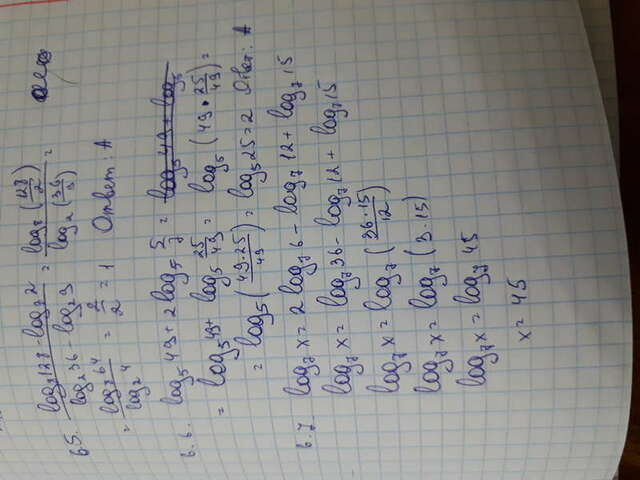 6.5. log₂128 - log₂2 / log₂36 - log₂9 = log₂(128/2) / log₂(36/9) =
= log₂64 / log₂4 = 2/2 = 1 Ответ: A
6.6. log₅49 + 2log₅ 5/7 =
= log₅49 + log₅ 25/49 = log₅(49 · 25/49) =
= log₅(49·25/49) = log₅25 = 2 Ответ: A
6.7 log₇x = 2log₇6 - log₇12 + log₇15
log₇x = log₇36 - log₇12 + log₇15
log₇x = log₇(36·15/12)
log₇x = log₇(3·15)
log₇x = log₇45
x = 45